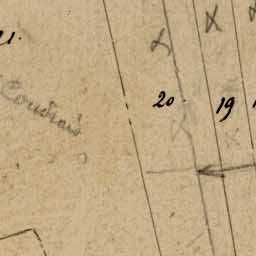 21.
20.
19
Coudrais